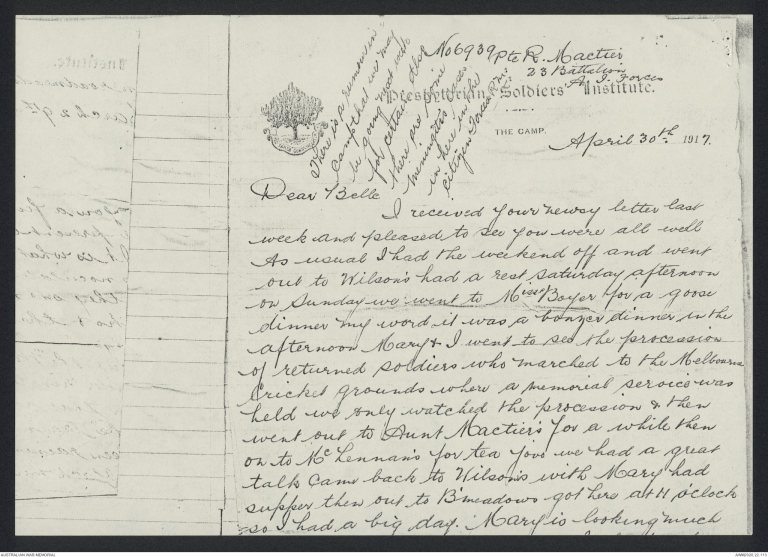 No 6939 Pte R. Mactier
23 Battalion
A. I. Forces
Presbyterian Soldiers' Institute.
THE CAMP.
April 30th 1917.
There is a rumour in
camp that we may
be going next week
for certain
there are nine
in here in the
citizen Forces
Dear Belle
I received your newsy letter last
week and pleased to see you were all well
As usual I had the weekend off and went
out to Wilson's had a rest Saturday afternoon
on Sunday we went to Miss Boyer for a goose
dinner my word it was a bonzer dinner in the
afternoon Mary & I went to see the procession
of returned soldiers who marched to the Melbourne
Cricket grounds where a memorial service was
held we only watched the procession & then
went out to Aunt Mactier's for a while then
on to McLennan's for tea we had a great
talk came back to Wilson's with Mary had
supper then out to B'meadows got here at 11 o'clock
so I had a big day. Mary is looking much
AUSTRALIAN WAR MEMORIAL